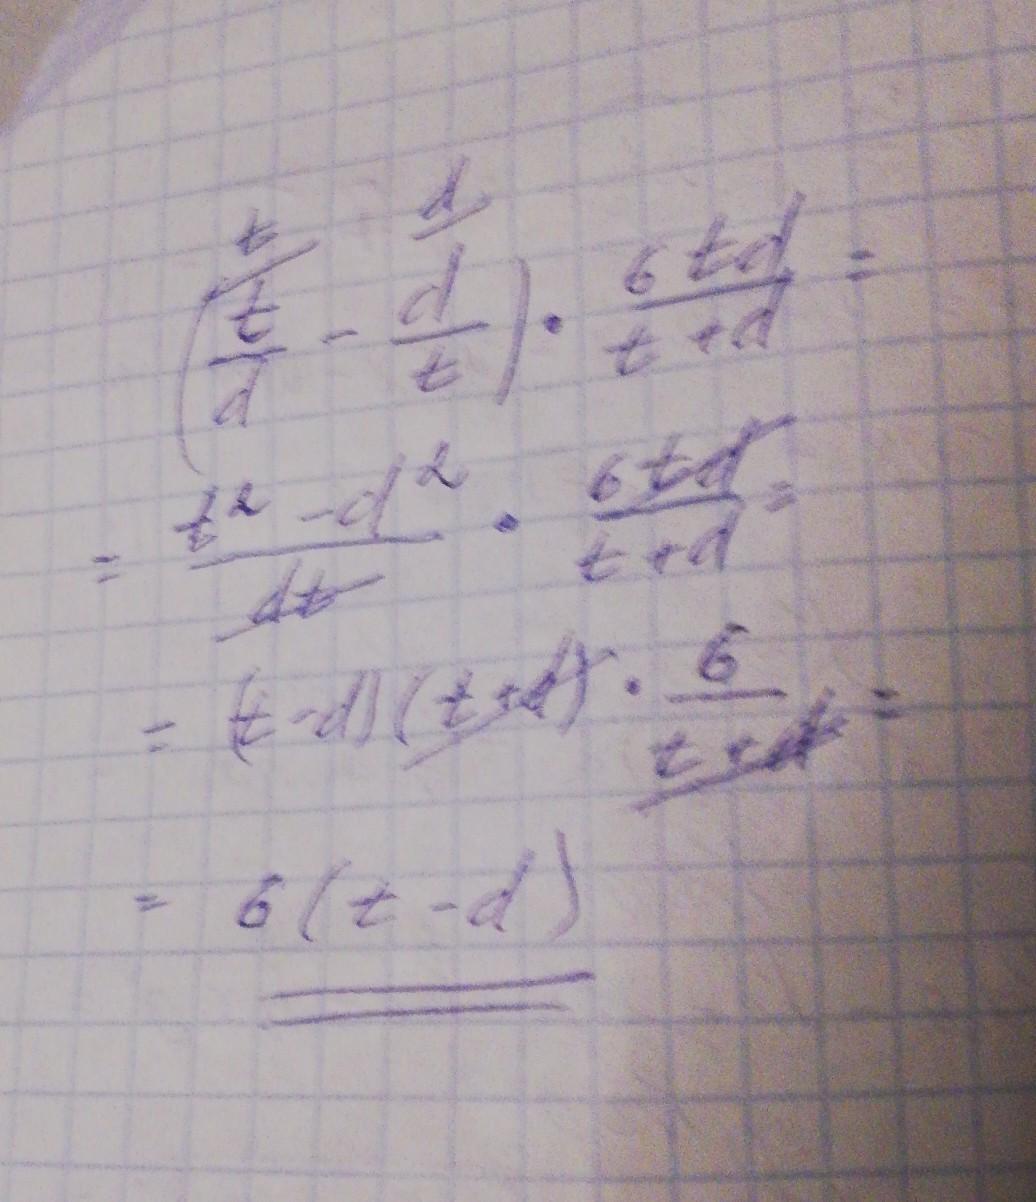 (t/d - d/t) · 6td/(t+d) =
= (t² - d²)/dt · 6td/(t+d) =
= (t-d)(t+d) · 6/(t+d) =
= 6(t-d)